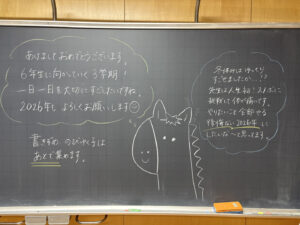 あけましておめでとうございます。
6年生に向けていく3学期！
一日一日を大切にすごしたいですね。
2026年も よろしくお願いします
書きぞめ、のびやか子は
あとで集めます。
冬休みは ゆっくり
すごせましたか…!?
先生は人生初！スノボに
挑戦して体が痛いです。
やりたいこと全部やる
後悔ない2026年に
したいな〜と思ってます。